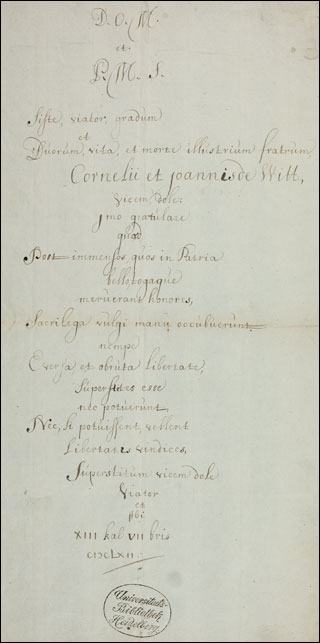 D. O. M.
et
P. M. S.
Siste, viator, gradum
et
Duorum, vita, et morte illustrium fratrum
Cornelii et Joannis de Witt,
vicem dole:
jmo gratulare
quod
Post immensos, quos in Patria
bello, togaque
meruerant honores,
Sacrilega vulgi manu occubuerunt
nempe
Eversa et obruta libertate,
Superstites esse
nec potuerunt,
Nec, si potuissent, vellent
Libertatis vindices,
Superstitum vicem dole
Viator
et
abi
XIII kal VII bris
Universitäts-
Bibliothek
Heidelberg